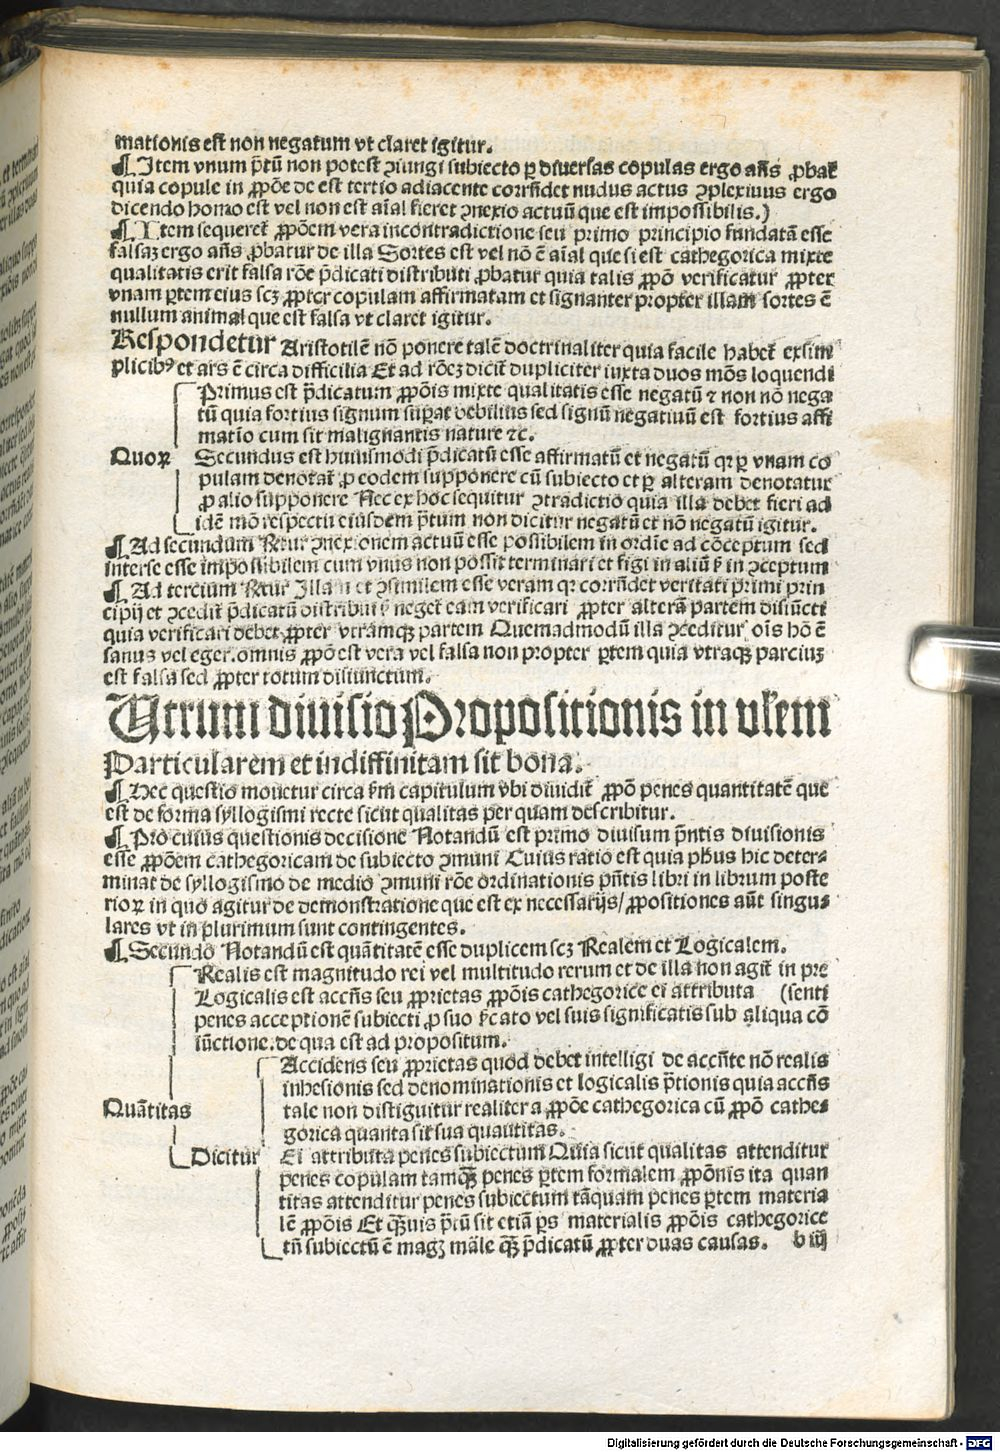 mationis est non negatum vt claret igitur.
¶ Item vnum p̄tū non potest ꝯiungi subiecto ꝑ diuersas copulas ergo an̄s ꝓbat̄
quia copule in ꝓpōe de est tertio adiacente corrn̄det nudus actus ꝯplexiuus ergo
dicendo homo est vel non est aīal fieret ꝯnexio actuū que est impossibilis.)
¶ Item sequeret̄ ꝓpōem vera incontradictione seu primo principio fundatā esse
falsaꝫ ergo an̄s ꝓbatur de illa Sortes est vel nō ē aīal que si est cathegorica mixte
qualitatis erit falsa rōe p̄dicati distributi ꝓbatur quia talis ꝓpō verificatur ꝓpter
vnam ꝑtem eius scꝫ ꝓpter copulam affirmatam et signanter propter illam sortes ē
nullum animal que est falsa vt claret igitur.
Respondetur Aristotilē nō ponere talē doctrinaliter quia facile habet̄ ex sim
plicibꝰ et ars ē circa difficilia Et ad rōeꝫ dicit̄ dupliciter iuxta duos mōs loquendi
Primus est p̄dicatum ꝓpōis mixte qualitatis esse negatū ⁊ non nō nega
tū quia fortius signum suꝑat debilius sed signū negatiuū est fortius affi
matīo cum sit malignantis nature ⁊c.
Quoꝝ Secundus est huiusmodi p̄dicatū esse affirmatū et negatū qꝛ ꝑ vnam co
pulam denotat̄ ꝓ eodem supponere cū subiecto et ꝑ alteram denotatur
ꝓ alio supponere Nec ex hoc sequitur ꝯtradictio quia illa debet fieri ad
idē mō respectu eiusdem p̄tum non dicitur negatū et nō negatū igitur.
¶ Ad secundum Rn̄tur ꝯnexionem actuū esse possibilem in ordīe ad cōceptum sed
inter se esse impossibilem cum vnus non possit terminari et figi in aliū in ꝯceptum
¶ Ad tercium Rn̄tur Illam et ꝯsimilem esse veram qꝛ corrn̄det veritati primi prin
cipij et ꝯcedit̄ p̄dicatū distribui neget̄ eam verificari ꝓpter alterā partem disiūcti
quia verificari debet ꝓpter vtramqꝫ partem Quemadmodū illa ꝯceditur oīs hō ē
sanus vel eger. omnis ꝓpō est vera vel falsa non propter ꝑtem quia vtraqꝫ parciuꝫ
est falsa sed ꝓpter totum disiunctum.
Utrum diuisio Propositionis in vl̄em
Particularem et indiffinitam sit bona.
¶ Hec questio mouetur circa capitulum vbi diuidit̄ ꝓpō penes quantitatē que
est de forma syllogismi recte sicut qualitas per quam describitur.
¶ Pro cuius questionis decisione Notandū est primo diuisum p̄ntis diuisionis
esse ꝓpōem cathegoricam de subiecto ꝯmuni Cuius ratio est quia ph̄us hic deter-
minat de syllogismo de medio ꝯmuni rōe ordinationis p̄ntis libri in librum poste
rioꝝ in quo agitur de demonstratione que est ex necessarijs/ ꝓpositiones aūt singu-
lares vt in plurimum sunt contingentes.
¶ Secundo Notandū est quātitatē esse duplicem scꝫ Realem et Logicalem.
Realis est magnitudo rei vel multitudo rerum et de illa non agit̄ in pre
Logicalis est accn̄s seu ꝓprietas ꝓpōis cathegorice ei attributa (senti
penes acceptionē subiecti ꝓ suo sicato vel suis significatis sub aliqua cō
iūctione. de qua est ad propositum.
Accidens seu ꝓprietas quod debet intelligi de accn̄te nō realis
inhesionis sed denominationis et logicalis p̄tionis quia accn̄s
Quātitas tale non distiguitur realiter a ꝓpōe cathegorica cū ꝓpō cathe-
gorica quanta sit sua quantitas.
Dicitur Ei attributa penes subiectum Quia sicut qualitas attenditur
penes copulam tamqꝫ penes ꝑtem formalem ꝓpōnis ita quan
titas attenditur penes subiectum tāquam penes ꝑtem materia
lē ꝓpōis Et qꝫuis p̄tū sit etiā ꝑs materialis ꝓpōis cathegorice
tn̄ subiectū ē magꝫ māle qꝫ p̄dicatū ꝓpter duas causas. b iij
Digitalisierung gefördert durch die Deutsche Forschungsgemeinschaft - DFG